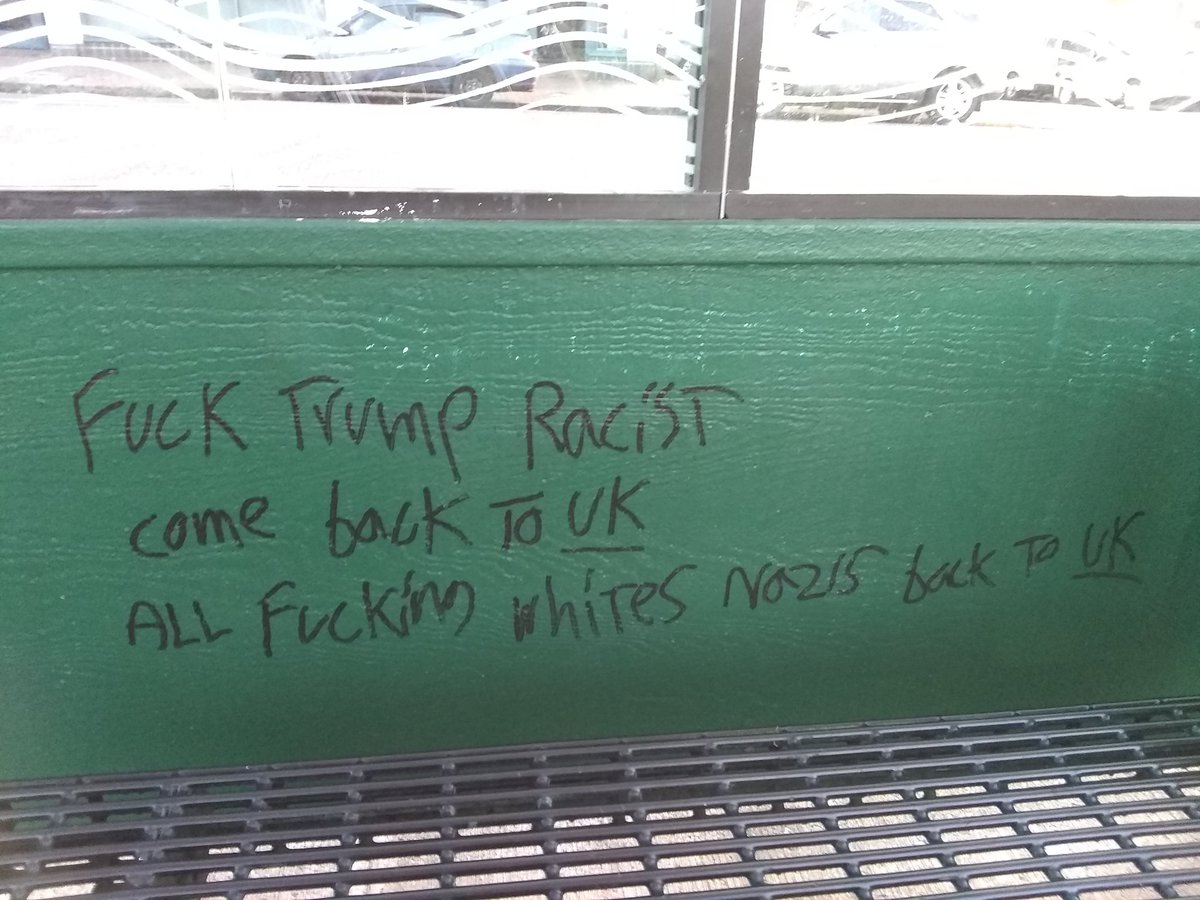 Fuck Trump Racist
come back to UK
ALL Fucking whites Nazis back to UK